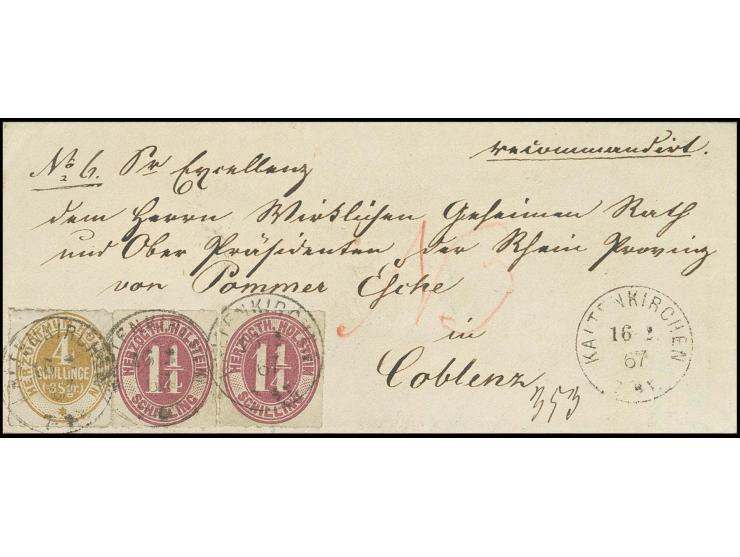 recommandirt.
No 6. Sr Excellenz
dem Herrn Wirklichen Geheimen Rath
und Ober Präsidenten der Rhein Provinz
von Pommer Esche
in
Coblenz
353
KALTENKIRCHEN
16 2
67
4
SCHILLINGE
HERZOGTH. HOLSTEIN
1¼
SCHILLING
HERZOGTH. HOLSTEIN
1¼
SCHILLING